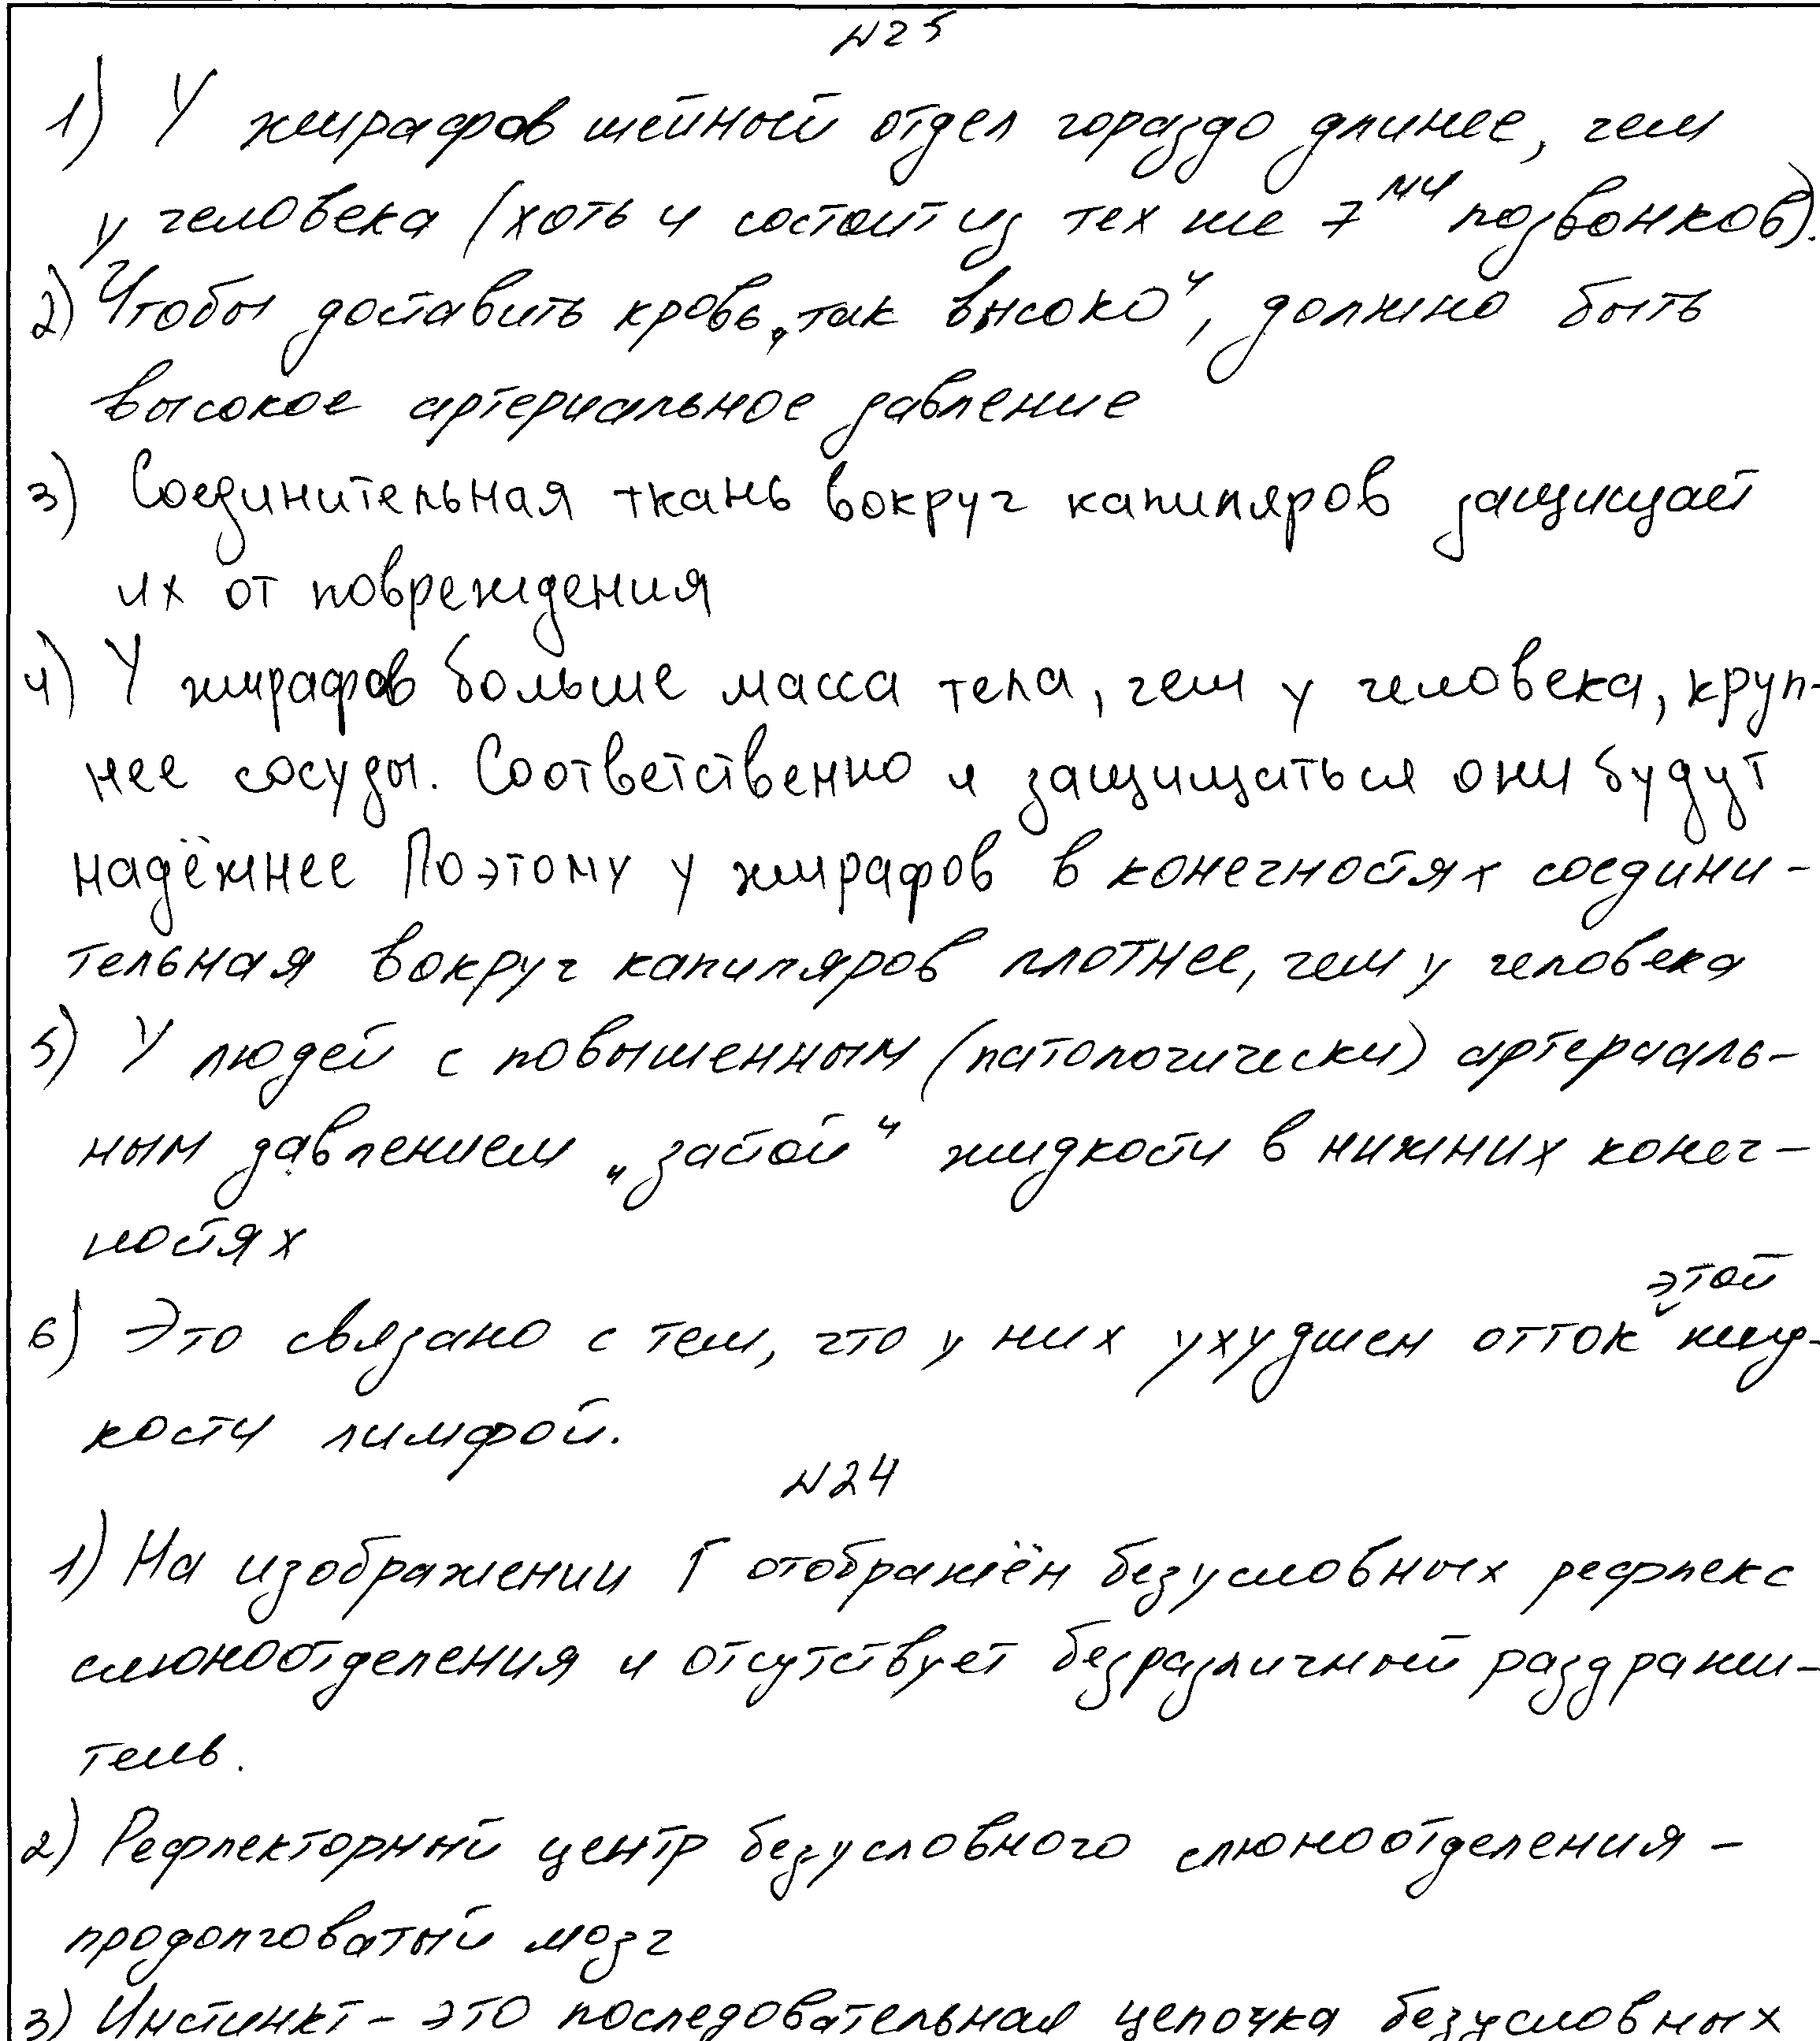 №25
1) У жирафов шейный отдел гораздо длинее, чем
у человека (хоть и состоит из тех же 7ми позвонков).
2) Чтобы доставить кровь „так высоко“, должно быть
высокое артериальное давление
3) Соединительная ткань вокруг капиляров защищает
их от повреждения
4) У жирафов больше масса тела, чем у человека, круп-
нее сосуды. Соответственно и защищаться они будут
надёжнее Поэтому у жирафов в конечностях соедини-
тельная вокруг капиляров плотнее, чем у человека
5) У людей с повышенным (патологически) артериаль-
ным давлением „застой“ жидкости в нижних конеч-
ностях
6) Это связано с тем, что у них ухудшен отток этой жид-
кости лимфой.
№24
1) На изображении Г отображён безусловных рефлекс
слюноотделения и отсутствует безразличный раздражи-
тель.
2) Рефлекторный центр безусловного слюноотделения -
продолговатый мозг
3) Инстинкт - это последовательная цепочка безусловных